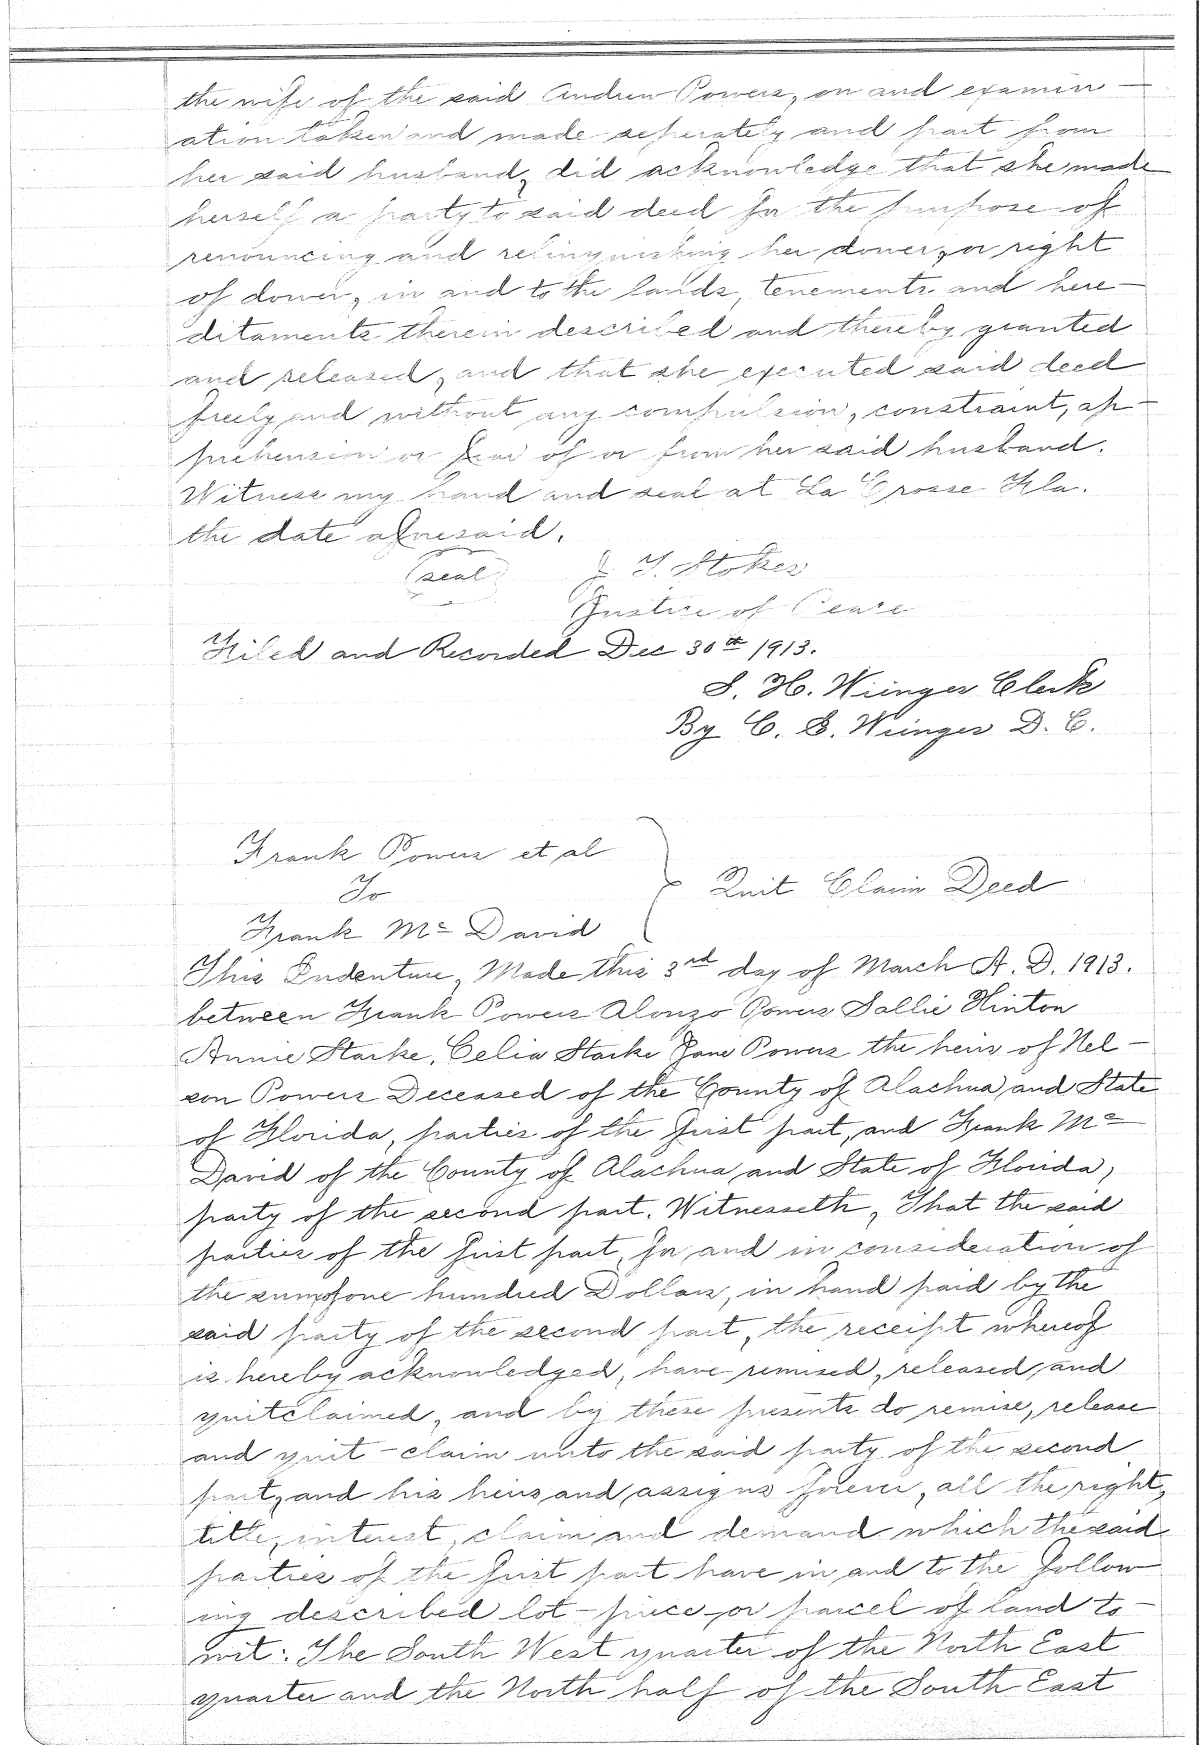 the wife of the said Andrew Powers, on and examin-
ation taken and made seperately and part from
her said husband, did acknowledge that she made
herself a party to said deed for the purpose of
renouncing and relinquishing her dower, or right
of dower, in and to the lands, tenements and here-
ditaments therein described and thereby granted
and released, and that she executed said deed
freely and without any compulsion, constraint, ap-
prehension or fear of or from her said husband.
Witness my hand and seal at La Crosse Fla.
the date aforesaid.
(seal) J. T. Stokes
Justice of Peace
Filed and Recorded Dec 30th 1913.
S. H. Wienges Clerk
By C. S. Wienges D. C.
Frank Powers et al
To
Quit Claim Deed
Frank Mc David
This Indenture, Made this 3rd day of March A. D. 1913.
between Frank Powers Alonzo Powers Sallie Hinton
Annie Starke, Celia Starke Jane Powers the heirs of Nel-
son Powers Deceased of the County of Alachua and State
of Florida, parties of the first part, and Frank Mc
David of the County of Alachua and State of Florida,
party of the second part. Witnesseth, That the said
parties of the first part, for and in consideration of
the sum of one hundred Dollars, in hand paid by the
said party of the second part, the receipt whereof
is hereby acknowledged, have remised, released and
quitclaimed, and by these presents do remise, release
and quit-claim unto the said party of the second
part, and his heirs and assigns forever, all the right,
title, interest, claim and demand which the said
parties of the first part have in and to the follow
ing described lot-piece or parcel of land to-
wit: The South West quarter of the North East
quarter and the North half of the South East